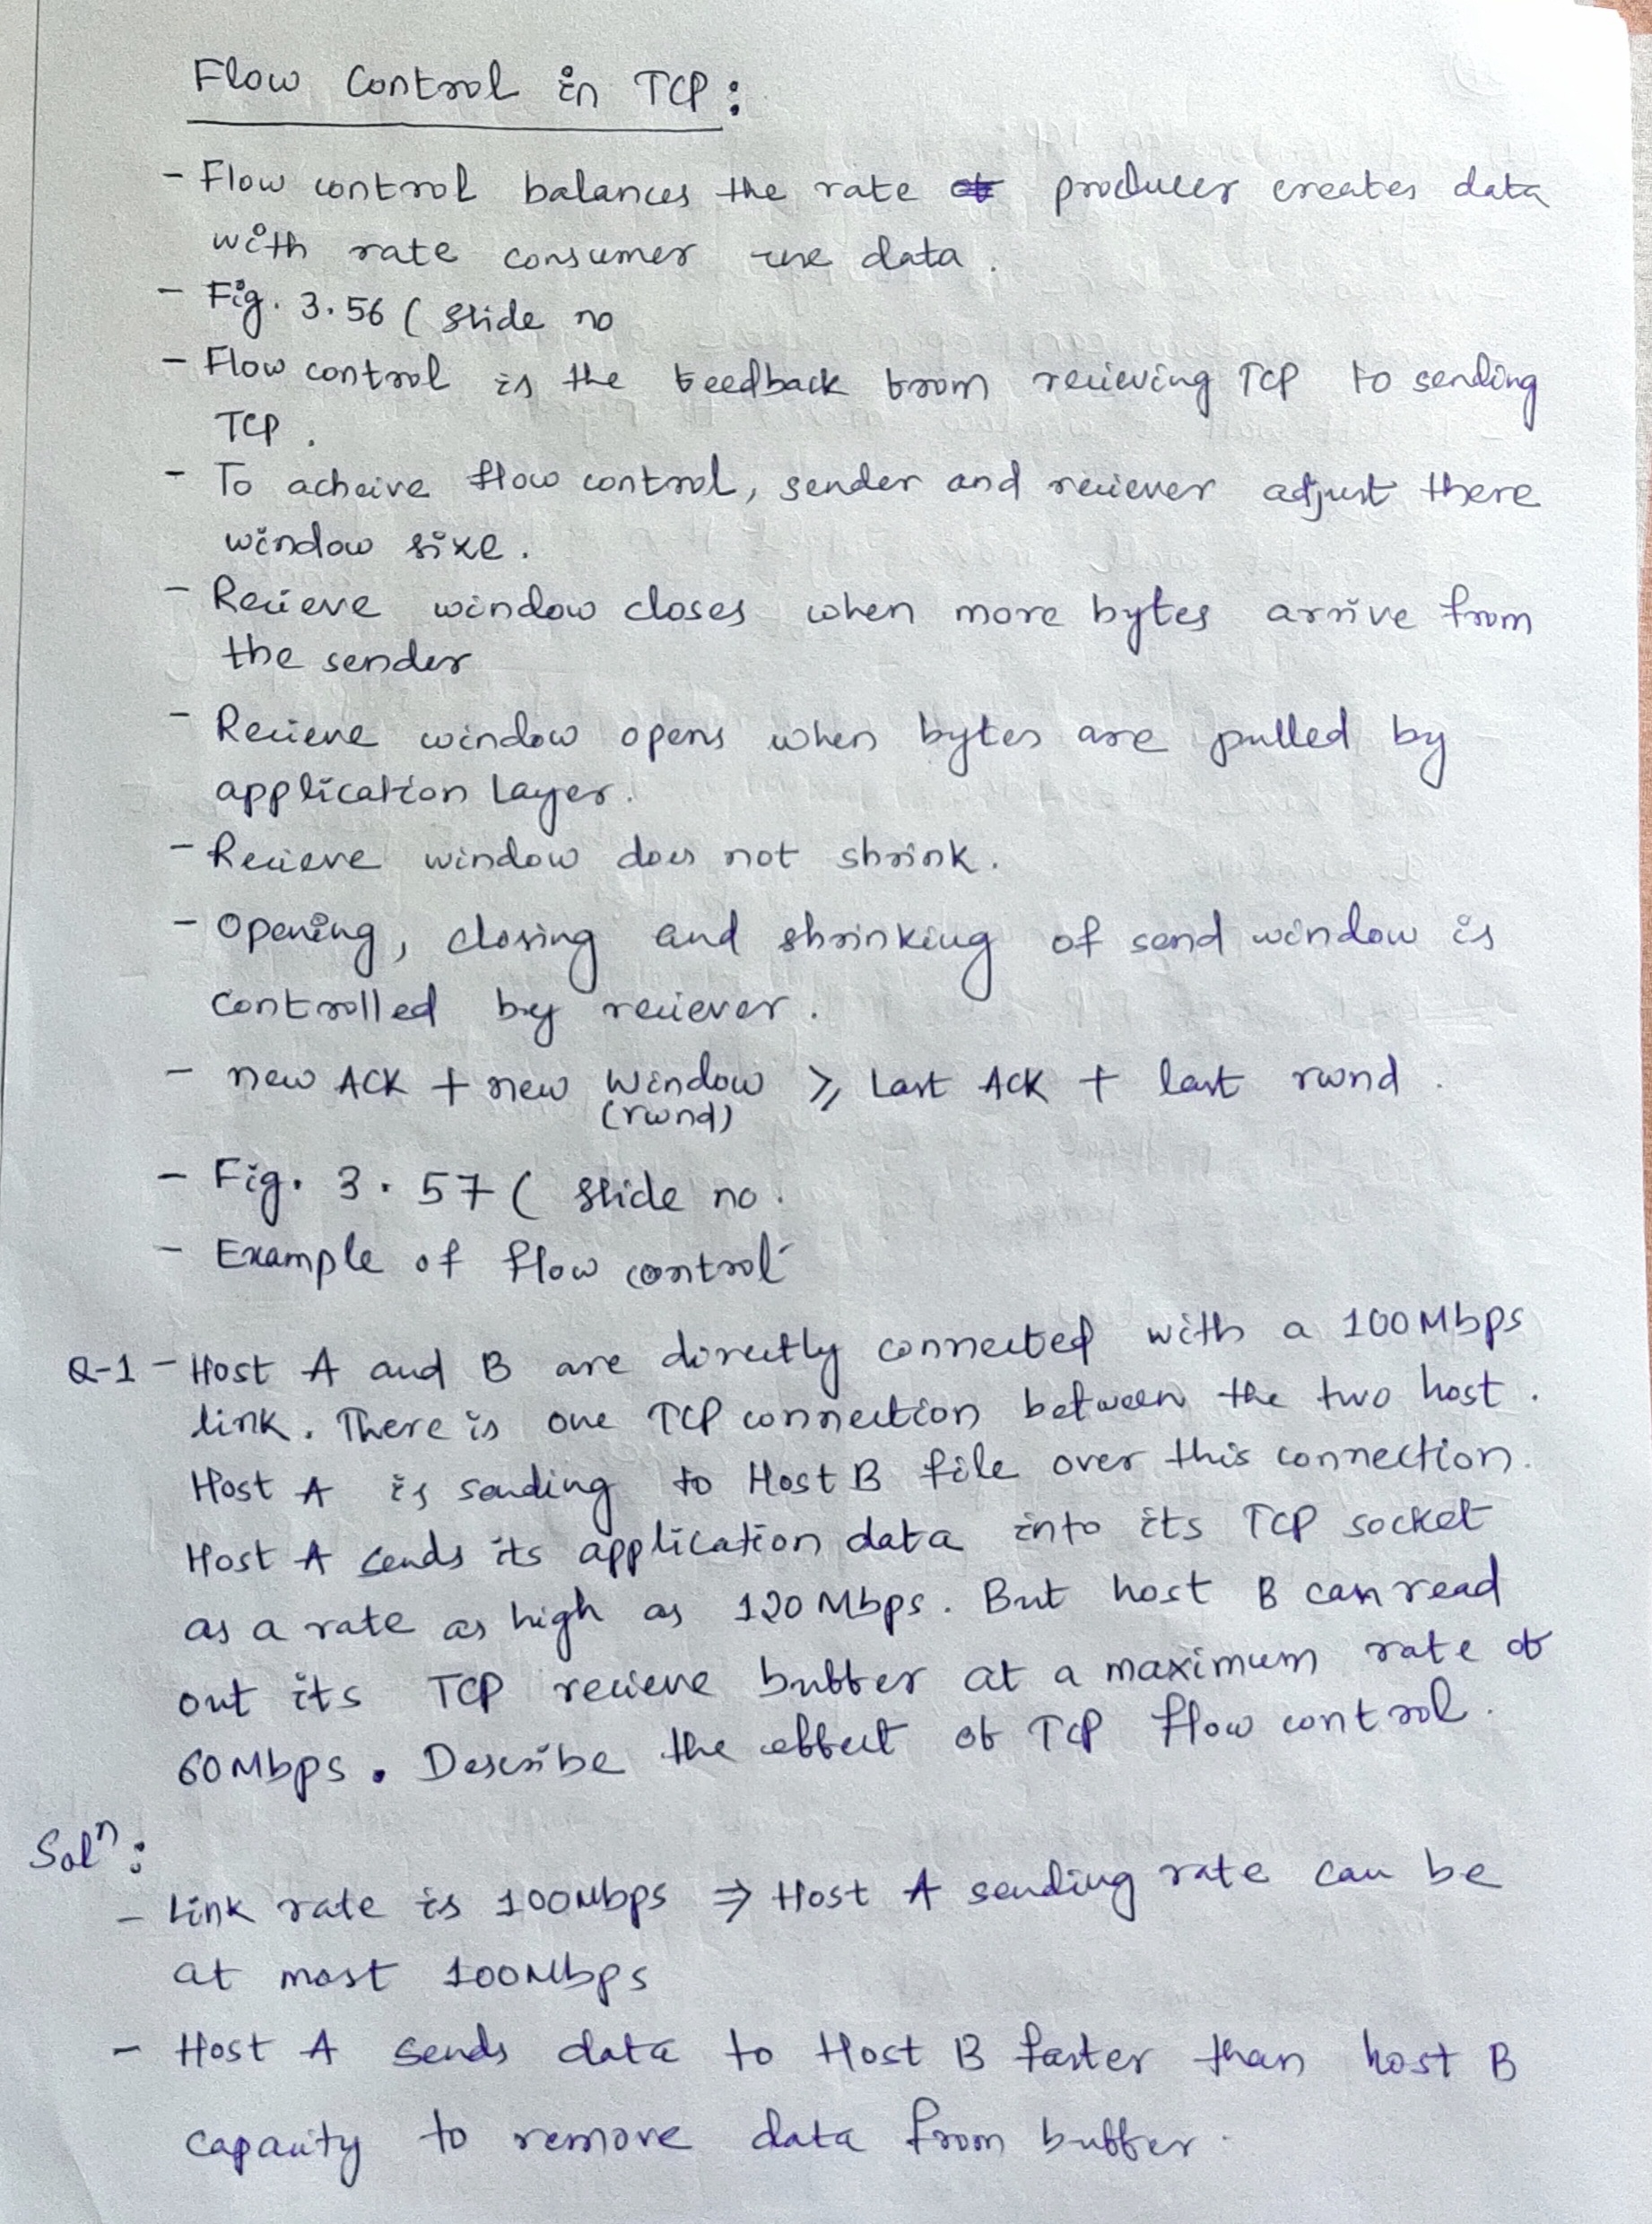 Flow Control in TCP:
- Flow control balances the rate producer creates data
with rate consumer use data.
- Fig. 3.56 ( Slide no
- Flow control is the feedback from recieving TCP to sending
TCP.
- To acheive flow control, sender and reciever adjust there
window size.
- Recieve window closes when more bytes arrive from
the sender
- Recieve window opens when bytes are pulled by
application layer.
- Recieve window does not shrink.
- Opening, closing and shrinking of send window is
controlled by reciever.
- new ACK + new window ⩾ Last ACK + last rwnd.
(rwnd)
- Fig. 3.57 ( Slide no.
- Example of flow control
Q-1 - Host A and B are directly connected with a 100Mbps
link. There is one TCP connection between the two host.
Host A is sending to Host B file over this connection.
Host A sends its application data into its TCP socket
as a rate as high as 120Mbps. But host B can read
out its TCP recieve buffer at a maximum rate of
60Mbps. Describe the effect of TCP flow control.
Solⁿ:
- Link rate is 100Mbps ⇒ Host A sending rate can be
at most 100Mbps
- Host A sends data to Host B faster than host B
capacity to remove data from buffer.